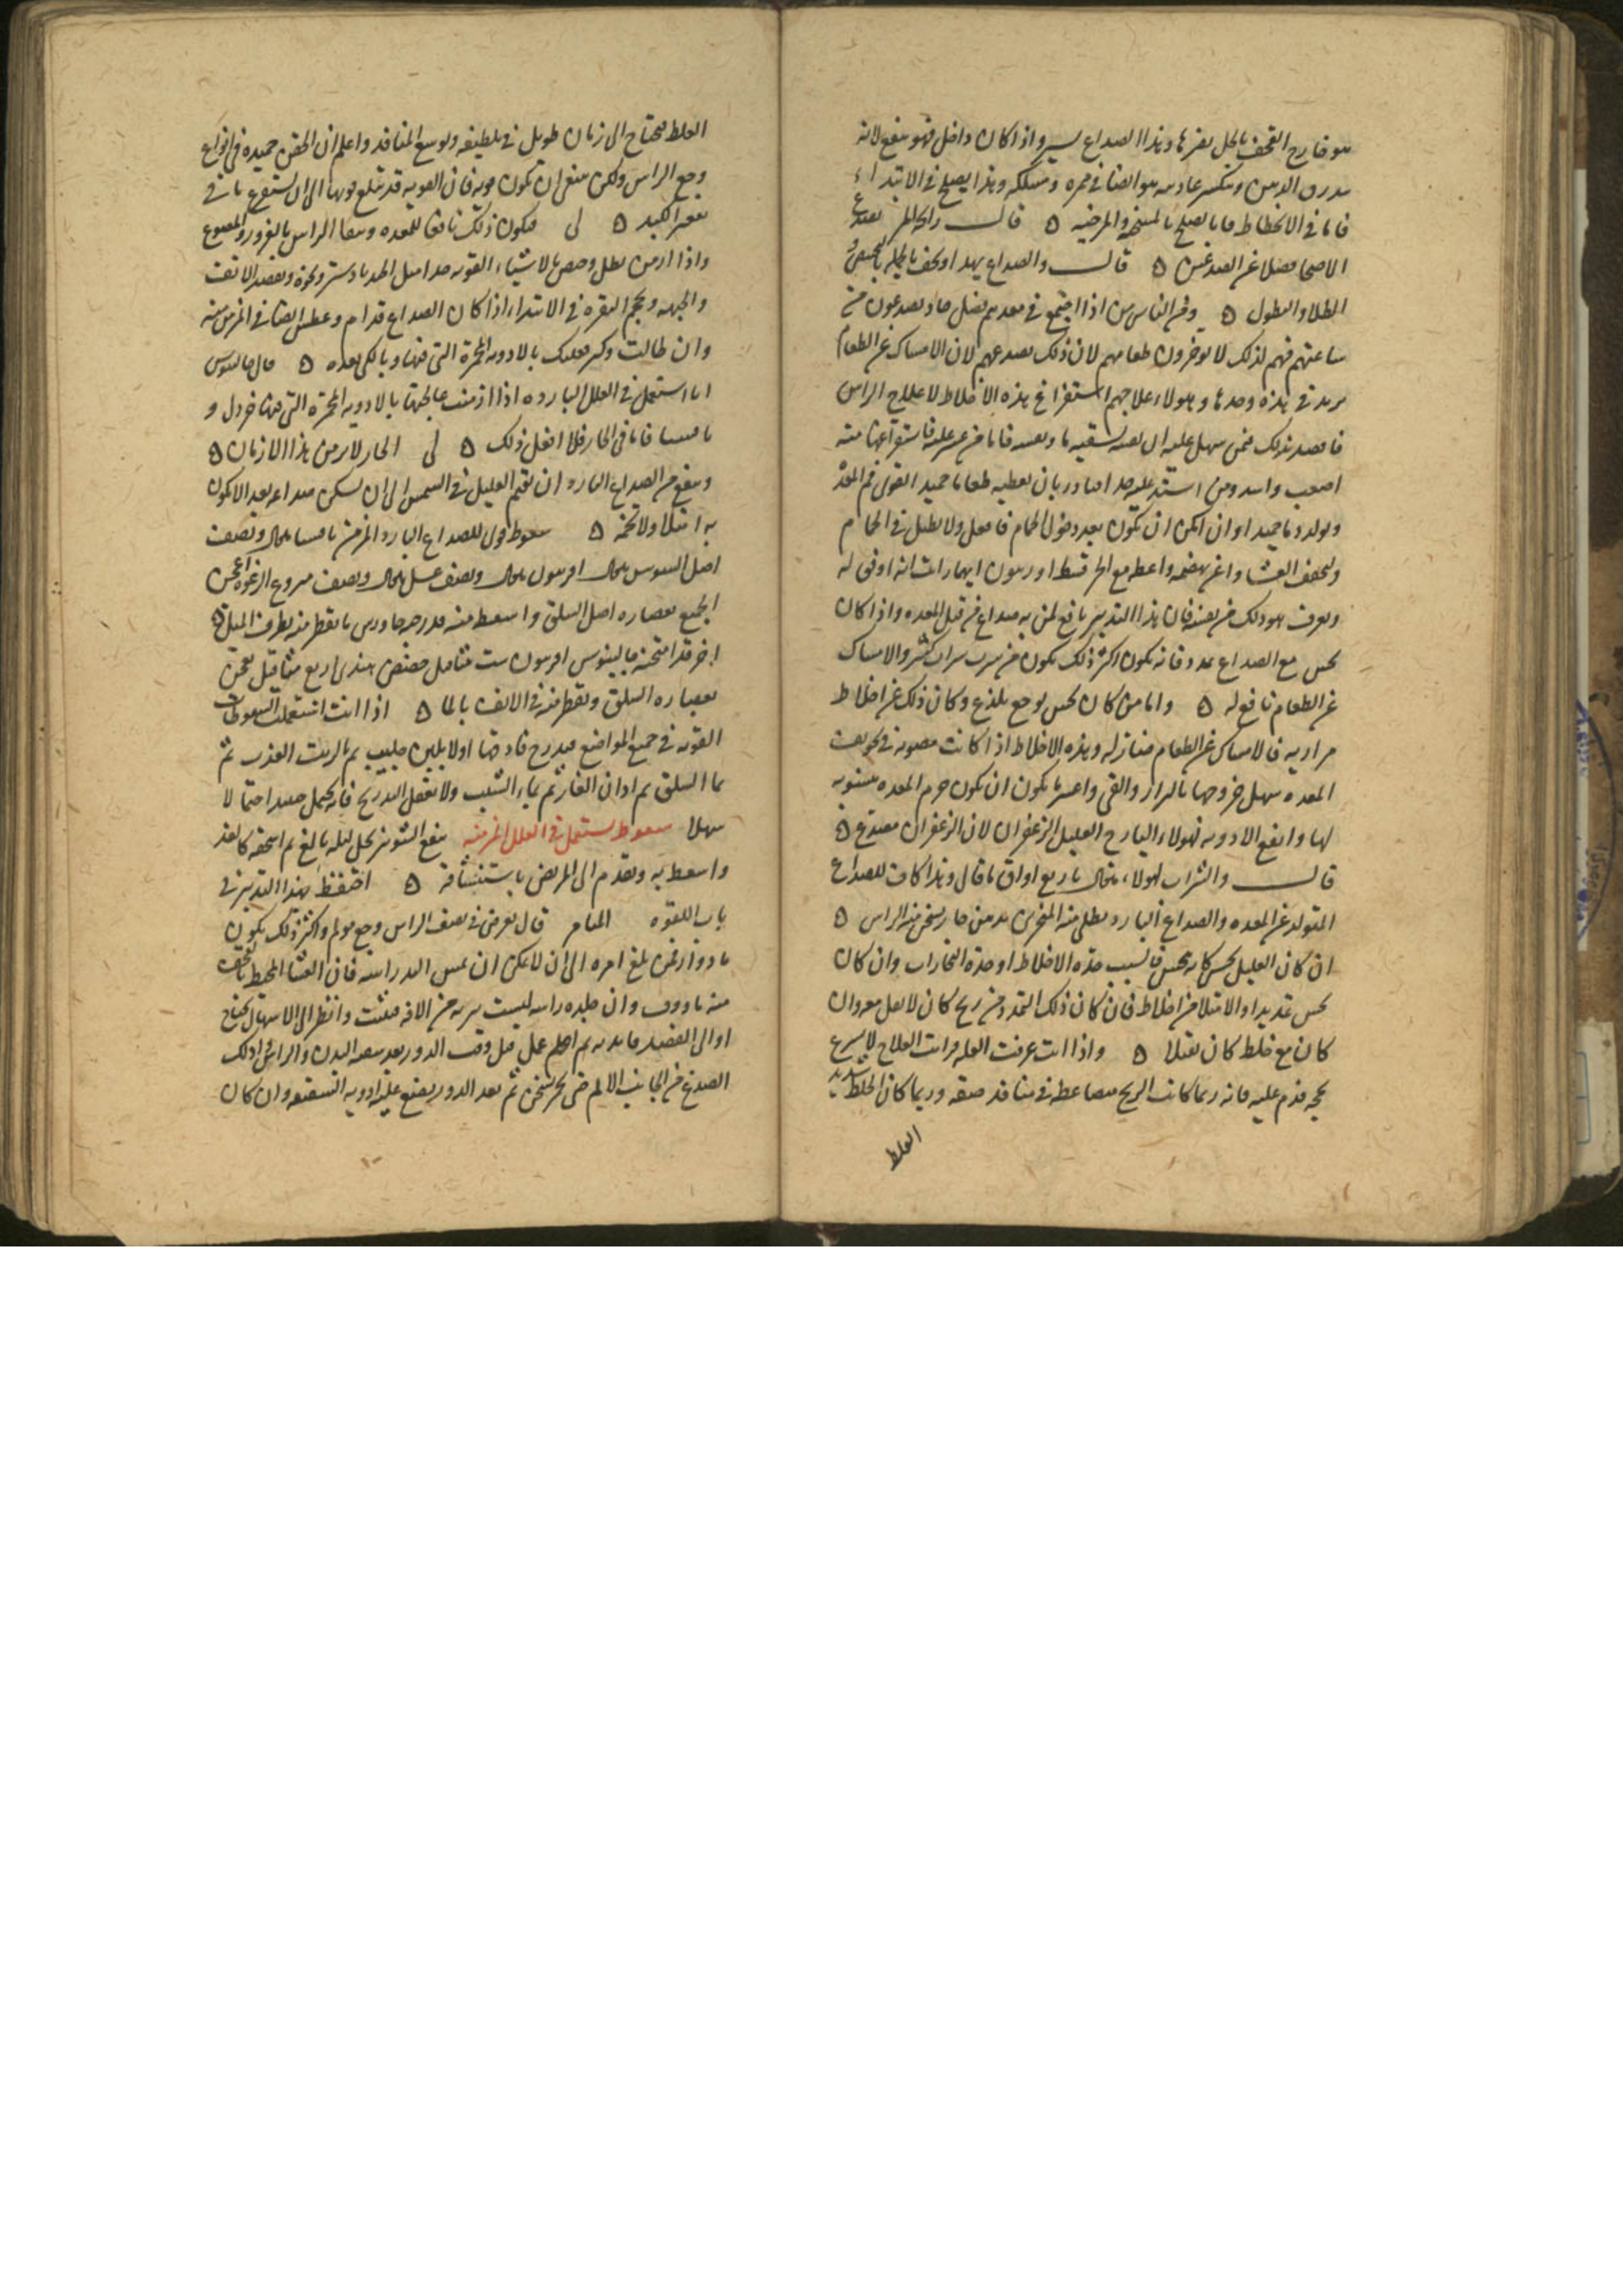 هو خارج القحف بالخل يضرها وهذا الصداع يسير واذا كان داخل فهو ينفع لانه
يبدرق الدهن ويكسر عاديته هو ايضا في ممره ومسلكه وهذا يصلح في الابتداء
فاما في الانحطاط فما يصلح بالمسخنة والمرخيه ٥ قال رائحة المر تصدع
الاصحا فضلا عن الصدعين ٥ قال والصداع يهدا ويخف
الطلا والنطول ٥ ومن الناس من اذا اجتمع في معدتهم فضل حاد يصدعون من
ساعتهم فهم لذلك لا يوخرون طعامهم لان ذلك يصدعهم لان الامساك عن الطعام
يزيد في هذه وحدها وهولاء علاجهم استفراغ هذه الاخلاط لا علاج الراس
فاقصد لذلك فمن سهل عليه ان تسقيه ما وتقيه فاما من عسر عليه فاستفراغها منه
اصعب واشد ومن اشتد عليه جدا فبادر بان تعطيه طعاما جيد القوى فم المعدة
ويولد دما جيدا وان امكن ان يكون بعد دخول الحمام فافعل ولا تطيل في الحمام
وليخفف العشا واعن بهضمه واعطه مع الخبز قسطا وزيتون ايهما رايت انه اوفق له
ويعرف هو ذلك من نفسه فان هذا التدبير نافع لمن به صداع من قبل المعدة واذا كان
يحس مع الصداع تمدد فانه يكون اكثر ذلك يكون من شرب شراب كثير والامساك
عن الطعام نافع له ٥ واما من كان يحس بوجع يلذع وكان ذلك عن اخلاط
مراريه فالامساك عن الطعام ضار له وهذه الاخلاط اذا كانت مصبوبة في تجويف
المعده سهل خروجها بالبراز والقي واعسر ما يكون ان يكون جرم المعده مشوبه
بها وانفع الادويه لهولاء اليارج القليل الزعفران لان الزعفران مصدع ٥
قال والشراب لهولاء مثقال باربع اواق ما قال وهذا كاف للصداع
المتولد عن المعده والصداع البارد يطلى منه المنخرين بدهن حار يسخن منه الراس ٥
ان كان العليل يحس كانه ينخس فالسبب حدة الاخلاط او حدة البخارات وان كان
يحس تمديدا والامتلا من اخلاط فان كان ذلك التمدد من ريح كان لا ثقل معه وان
كان مع خلط كان ثقيلا ٥ واذا انت عرفت العله ورايت العلاج لا يسرع
نجحه فدم عليه فانه ربما كانت الريح ضاغطة في منافذ ضيقه وربما كان الخلط شديد
الغلط
الغلط فيحتاج الى زمان طويل في تلطيفه وتوسيع المنافذ واعلم ان الحقن حميده في انواع
وجع الراس ولكن ينبغي ان تكون قويه فان القويه قد تبلغ قوتها الى ان تستفرغ ما في
تقعير الكبد ٥ لى فيكون ذلك نافعا للمعده وينقا الراس بالغرور والمضوغ
واذا ازمن بطل وخص بالاشياء القويه جدا مثل الجندبادستر ونحوه وبفصد الانف
والجبهه وحجم النقره في الابتداء اذا كان الصداع قدام وعطس ايضا في المزمن منه
وان طالت وكثر فعليك بالادويه المحمرة التي فيها وبالكي بعده ٥ قال جالينوس
انا استعمل في العلل البارده اذا ازمنت عالجتها بالادويه المحمرة التي فيها خردل و
ثافسيا فاما في الحار فلا افعل ذلك ٥ لى الحار لا يزمن هذا الازمان ٥
وينفع من الصداع البارد ان تقيم العليل في الشمس الى ان يسكن صداعه بعد الا يكون
به امتلا ولا تخمه ٥ سعوط قوي للصداع البارد المزمن ثافسيا مثقال ونصف
اصل السوس مثقال افربيون مثقال ونصف عسل مثقال ونصف منزوع الرغوة اعجن
الجميع بعصاره اصل السلق واسعط منه قدر حبة جاورس ما يقطر منه بطرف الميل ٥
اخر قد امتحنه جالينوس افربيون ست مثاقيل حضض هندي اربع مثاقيل يعجن
بعصاره السلق ويقطر منه في الانف بالما ٥ اذا انت استعملت السعوطات
القويه في جميع المواضع فبدرج فادفها اولا بلبن حليب ثم بالزيت العذب ثم
بما السلق ثم بماء اذان الفار ثم بماء الشبث ولا تغفل التدريج فانه يحمل جيدا احتمالا
سهلا سعوط يستعمل في العلل المزمنه ينقع الشونيز بخل ليله بالغ ثم اسحقه كالغد
واسعط به وتقدم الى المريض باستنشاقه ٥ احتفظ بهذا التدبير في
باب اللقوه المقام قال يعرض في نصف الراس وجع مولم واكثر ذلك يكون
بادوار فمن بلغ امره الى ان لا يمكن ان يمس اليد راسه فان الغشا المحيط بالقحف
منه ماووف وان جلده راسه ليست بريه من الافه فتثبت وانظر الى الاسهال يحتاج
او الى الفصد فابد به ثم اعمل قبل وقت الدور بعد تنقيه البدن والراس وادلك
الصدغ من الجانب الالم حتى يحمر ويسخن ثم بعد الدور يضع عليه ادويه الشقيقه وان كان